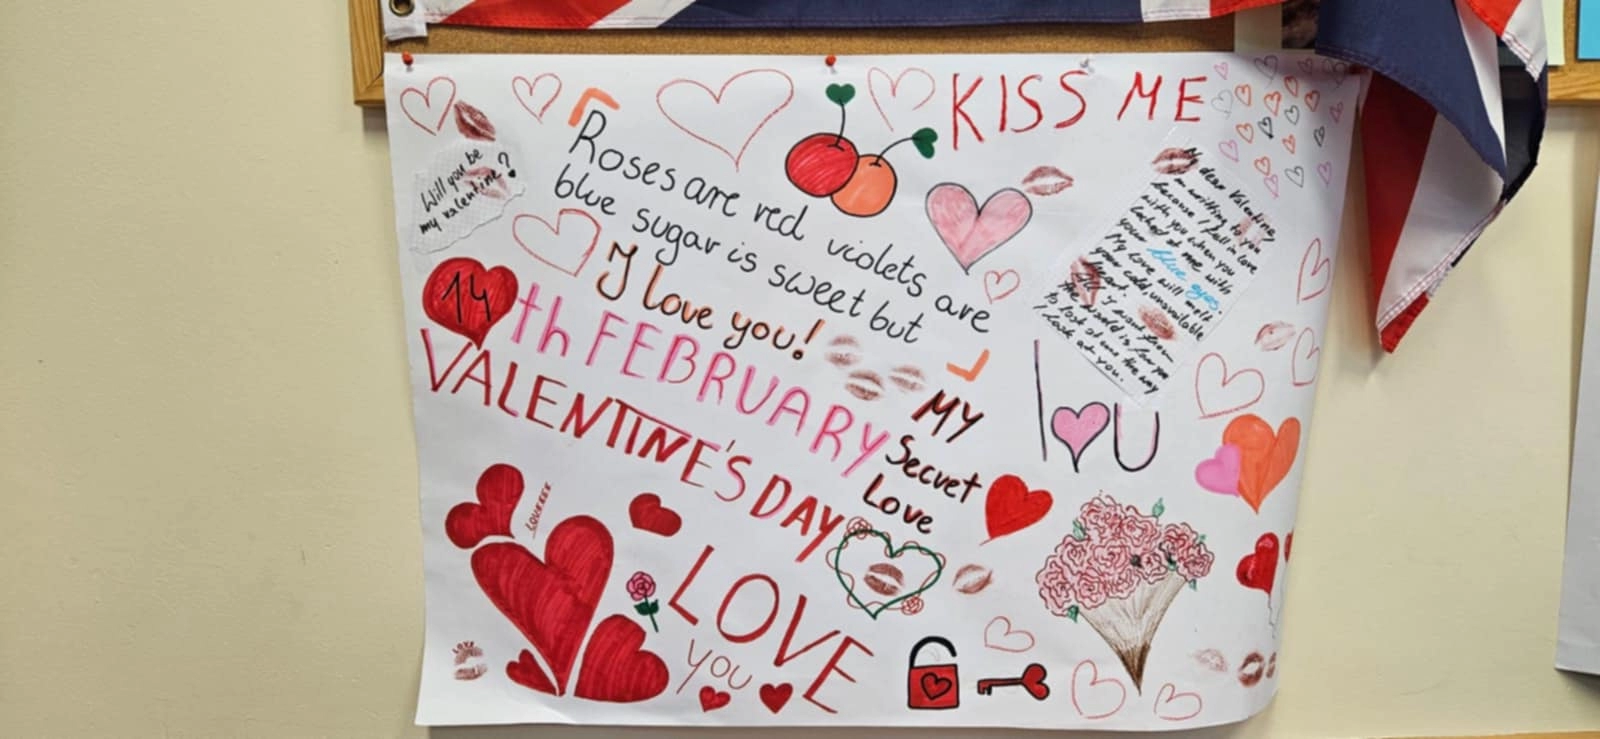 KISS ME
Will you be
my valentine?
Roses are red violets are
blue sugar is sweet but
I love you!
My dear Valentine,
I'm writting to you
because I fell in love
with you when you
looked at me with
your blue eyes.
My love will melt
your cold unavailable
heart. All I want from
the world is for you
to look at me the way
I look at you.
14th FEBRUARY
VALENTINE'S DAY
MY
Secret
Love
I U
LOVE
you
LOVE